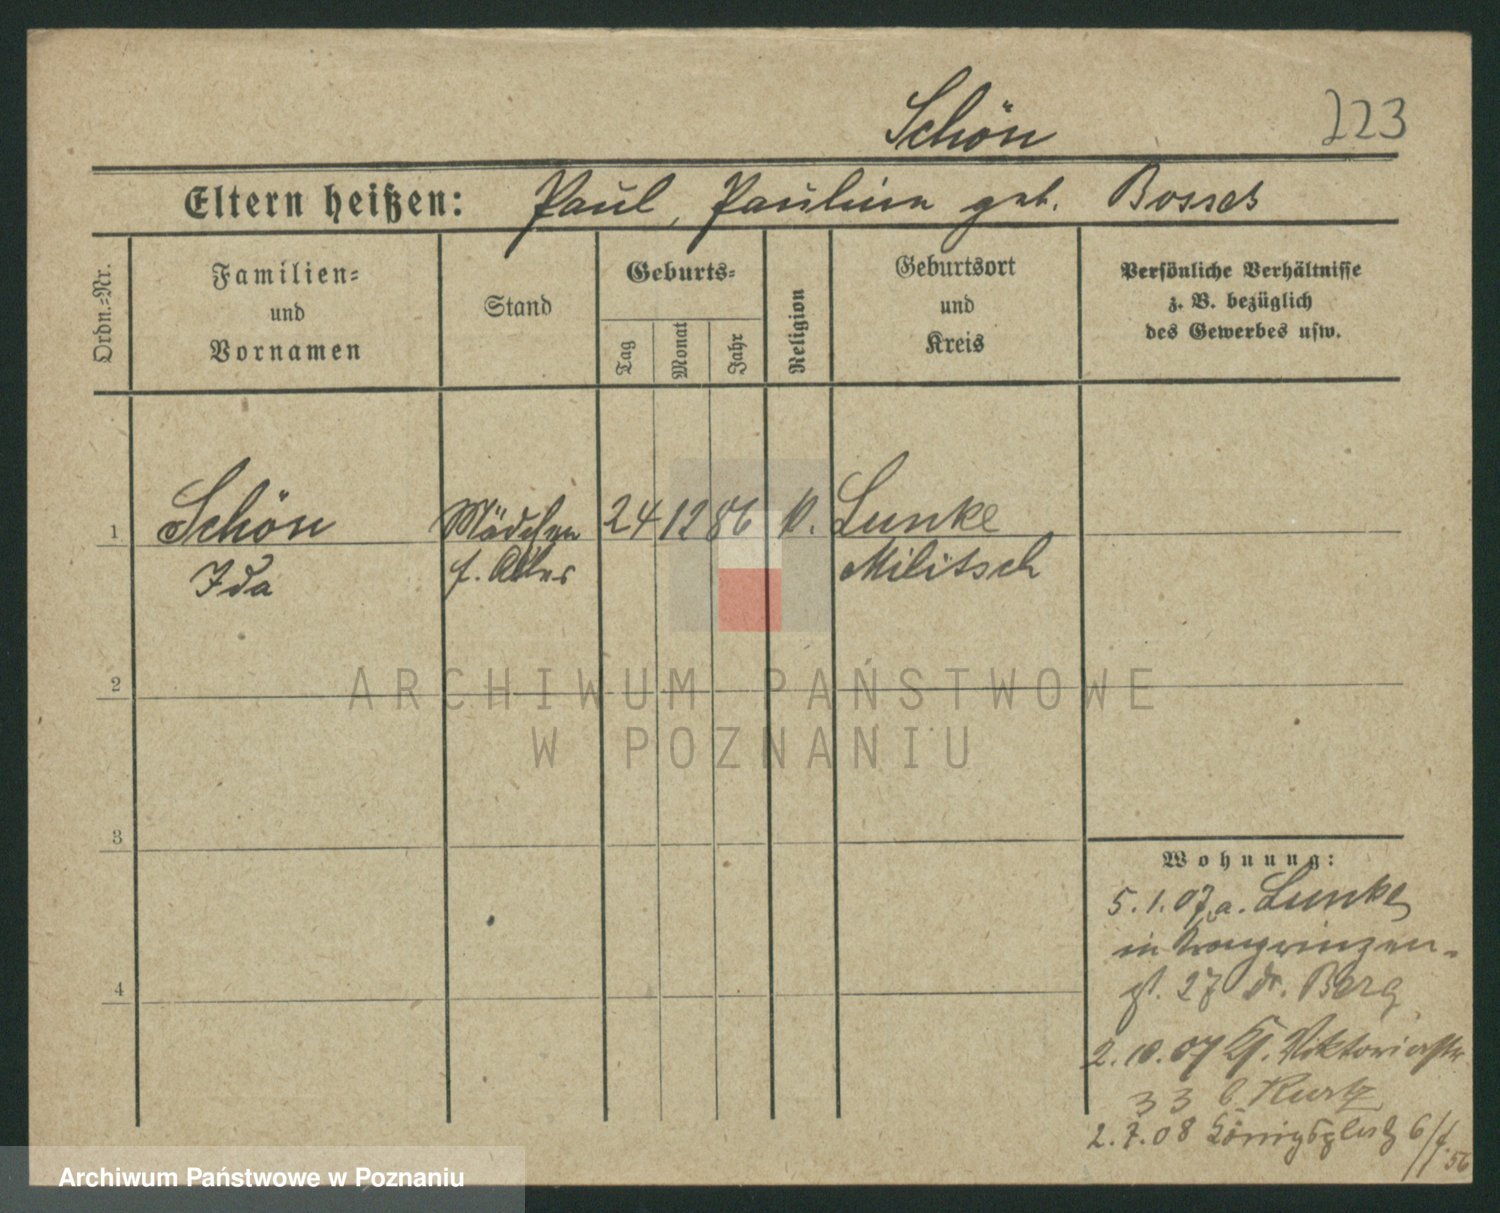 Schön
223
Eltern heißen: Paul, Pauline geb. Bosses
Ordn.=Nr.
Familien=
und
Vornamen
Stand
Geburts=
Tag
Monat
Jahr
Religion
Geburtsort
und
Kreis
Persönliche Verhältnisse
z. B. bezüglich
des Gewerbes usw.
1
Schön
Ida
Mädchen
f. Alles
24 12 86
Lunke
Militsch
2
3
4
Wohnung:
5.1.07 a. Lunke
in Kronprinzen-
st. 27 Dr. Berg
2.10.07 Viktoriastr
33 b. Kurtz
2.7.08 Königsplatz 6/
56
ARCHIWUM PAŃSTWOWE
W POZNANIU
Archiwum Państwowe w Poznaniu